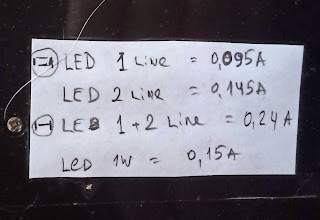 LED 1 Line = 0,095A
LED 2 Line = 0,145A
LED 1 + 2 Line = 0,24A
Led 1W = 0,15A